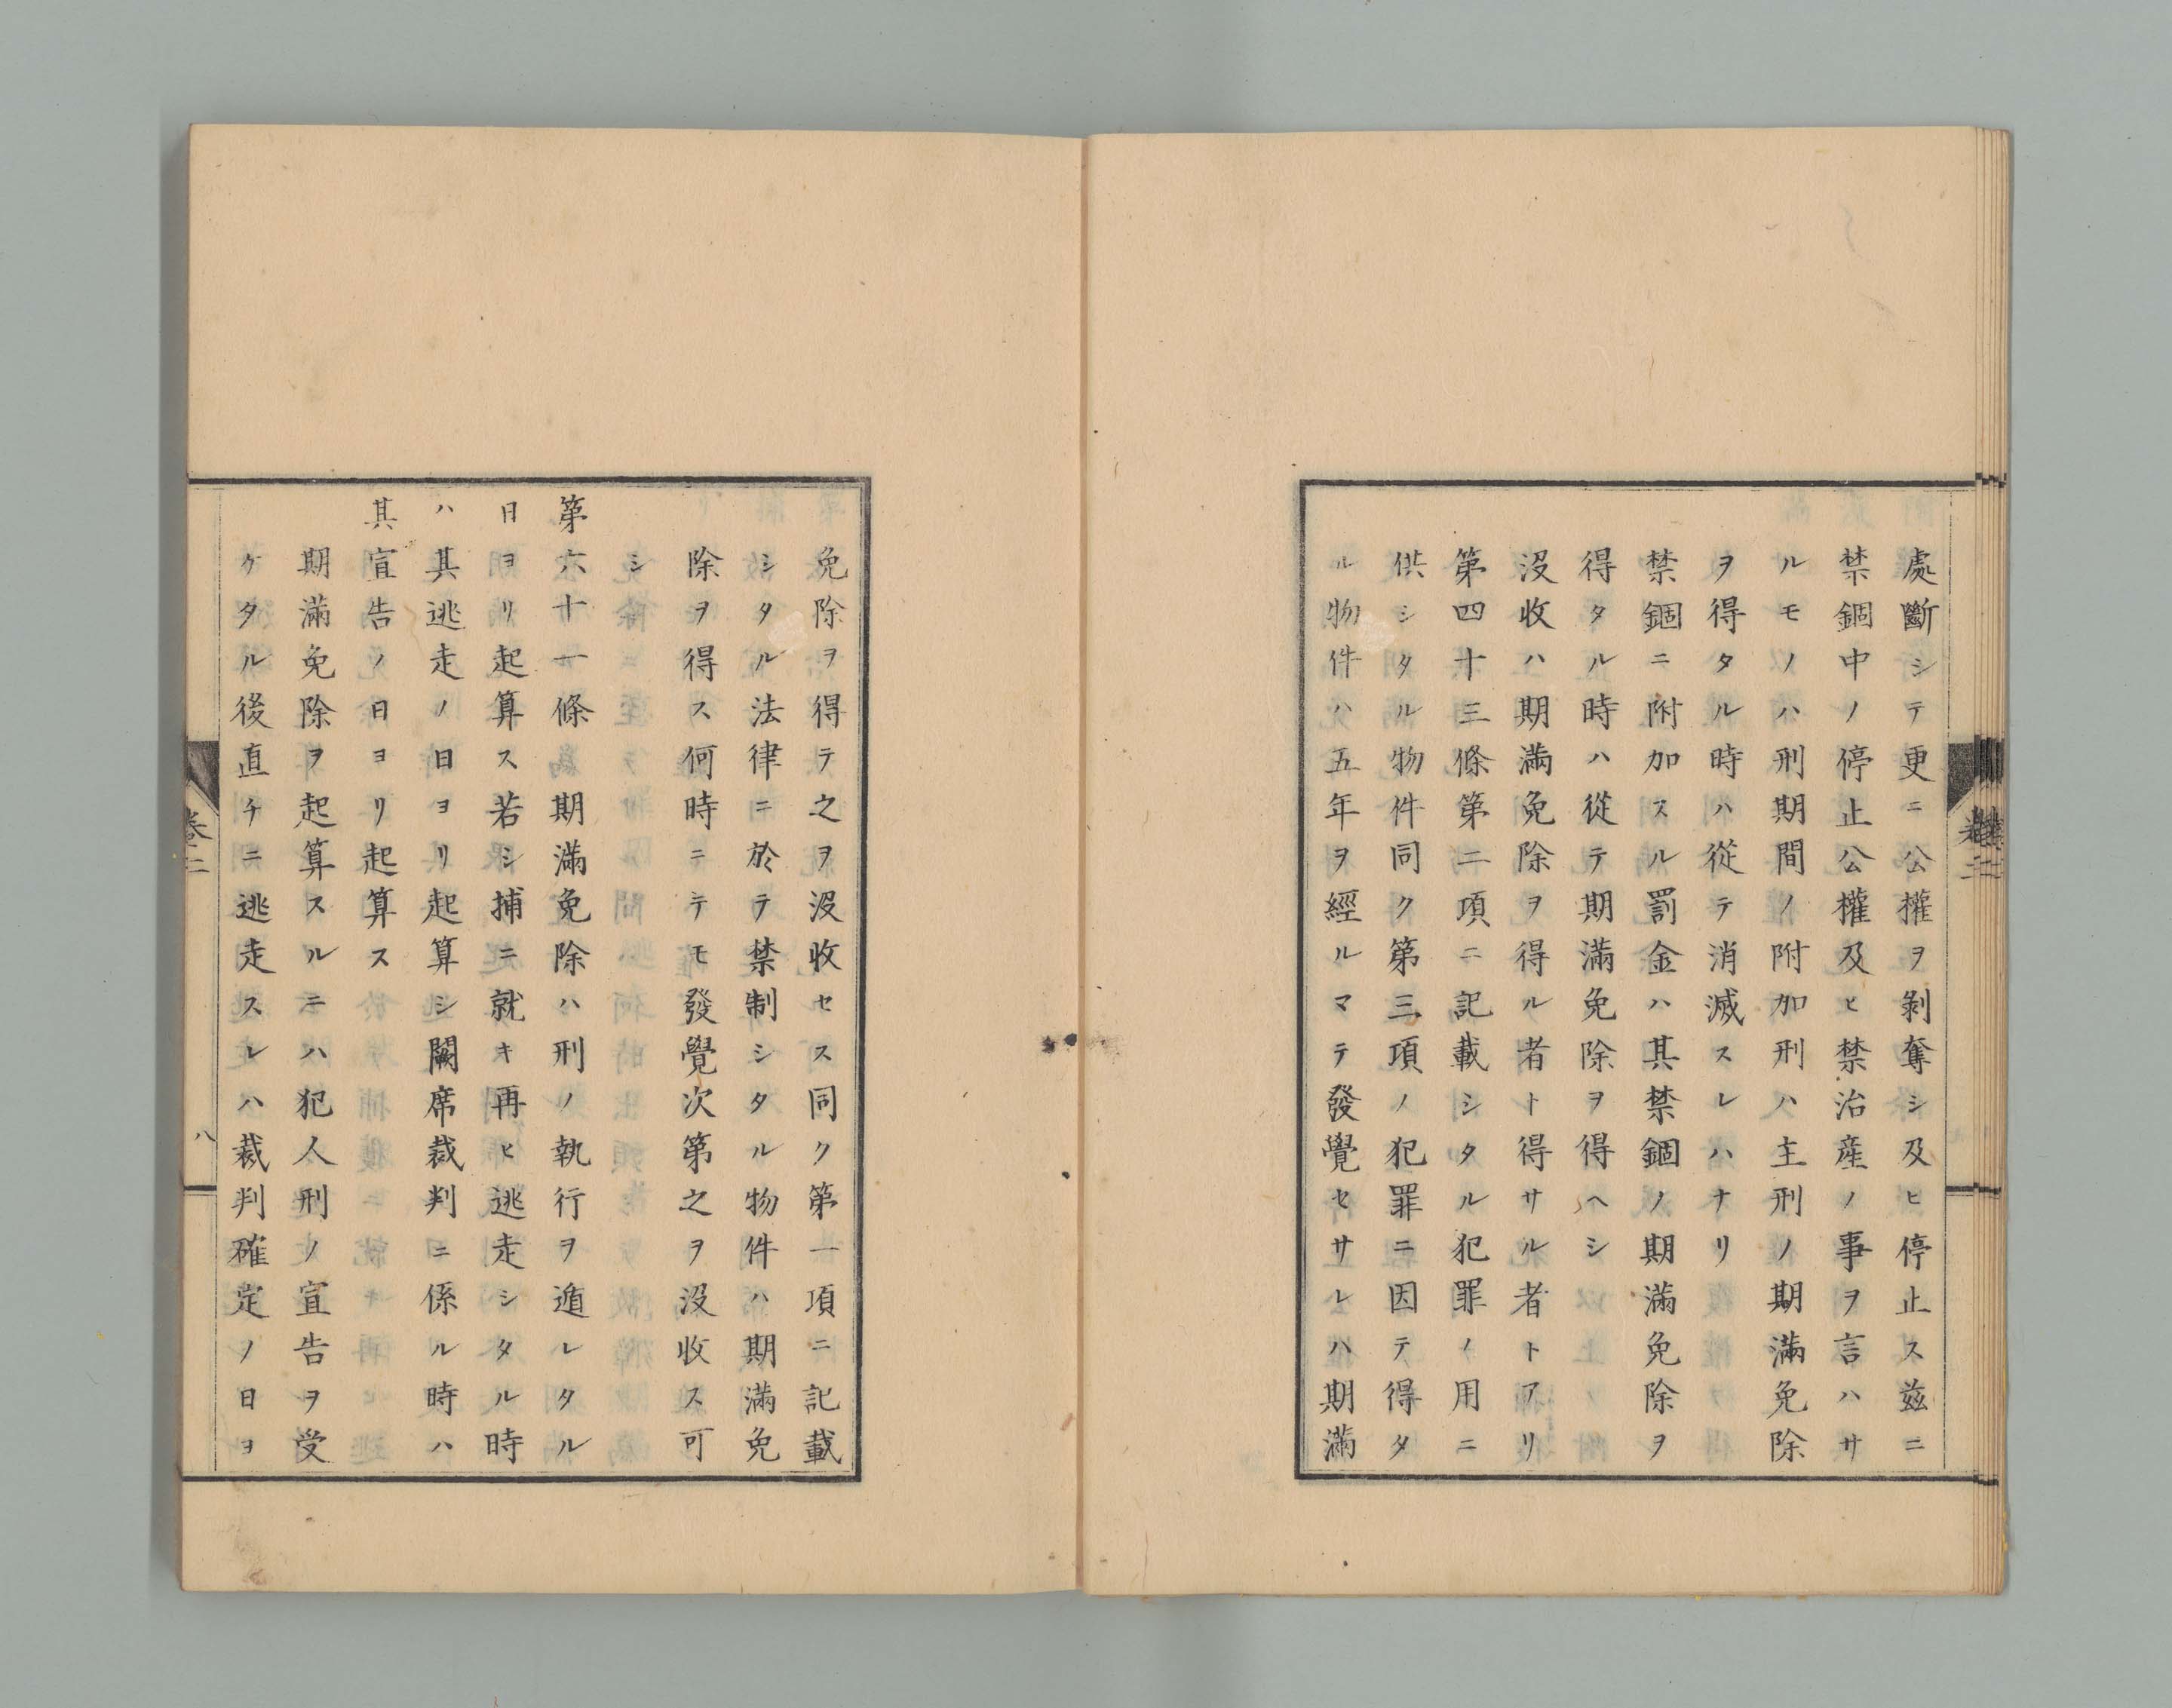 處斷シテ更ニ公權ヲ剝奪シ及ヒ停止ス兹ニ
禁錮中ノ停止公權及ヒ禁治産ノ事ヲ言ハサ
ルモノハ刑期間ノ附加刑ハ主刑ノ期滿免除
ヲ得タル時ハ從テ消滅スレハナリ
禁錮ニ附加スル罰金ハ其禁錮ノ期滿免除ヲ
得タル時ハ從テ期滿免除ヲ得ヘシ
沒收ハ期滿免除ヲ得ル者ト得サル者トアリ
第四十三條第二項ニ記載シタル犯罪ノ用ニ
供シタル物件同ク第三項ノ犯罪ニ因テ得タ
ル物件ハ五年ヲ經ルマテ發覺セサレハ期滿
卷二
免除ヲ得テ之ヲ沒收セス同ク第一項ニ記載
シタル法律ニ於テ禁制シタル物件ハ期滿免
除ヲ得ス何時ニテモ發覺次第之ヲ沒收ス可
シ
第六十一條期滿免除ハ刑ノ執行ヲ遁レタル
日ヨリ起算ス若シ捕ニ就キ再ヒ逃走シタル時
ハ其逃走ノ日ヨリ起算シ闕席裁判ニ係ル時ハ
其宣告ノ日ヨリ起算ス
期滿免除ヲ起算スルニハ犯人刑ノ宣告ヲ受
ケタル後直チニ逃走スレハ裁判確定ノ日ヲ
卷二
八